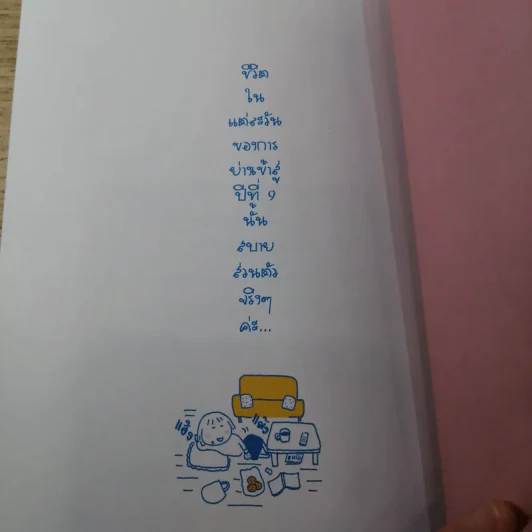 ชีวิต
ใน
แต่ละวัน
ของการ
ย่างเข้าสู่
ปีที่ 9
นั้น
สบาย
ส่วนตัว
จริงๆ
ค่ะ...